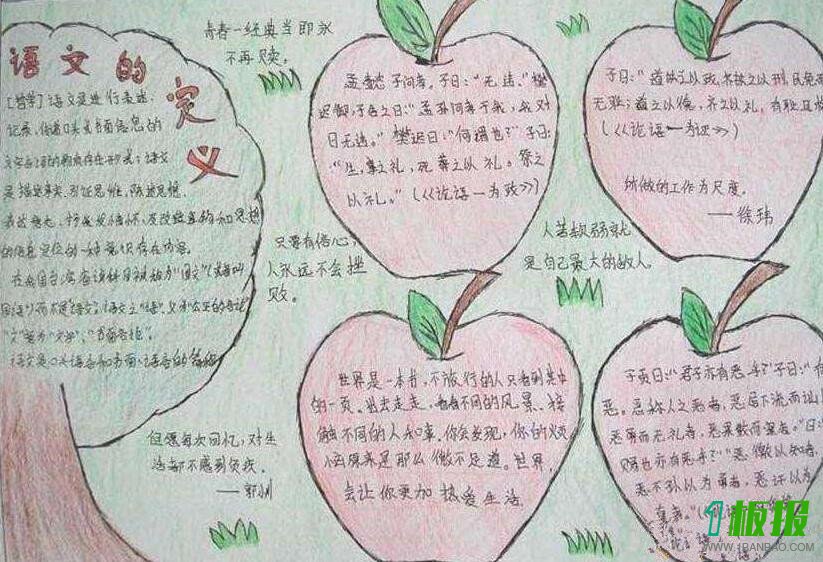 语文的定义
[哲学]语文是进行表述、
记录、传递口头或书面信息的
文字与词的
是描述事实、引证思维、陈述思想、
的信息定位的一种意识存在内容。
语文是口头语言和书面语言的简称
青春一经典当即永
不再赎。
孟懿子问孝。子曰:“无违。”樊
迟御,子告之曰:“孟孙问孝于我,我对
曰无违。”樊迟曰:“何谓也?”子曰:
“生,事之以礼,死葬之以礼。祭之
以礼。”(《论语一为政》)
子曰:“道之以政,齐之以刑,民免而
无耻;道之以德,齐之以礼,有耻且格
(《论语一为政》)
所做的工作为尺度。
——徐玮
只要有信心,
人永远不会挫
败。
人若软弱就
是自己最大的敌人。
世界是一本书,不旅行的人只看到其中
的一页。出去走走,看看不同的风景、接
触不同的人和事,你会发现,你的烦
恼原来是那么微不足道。世界,
会让你更加热爱生活
子贡曰:“君子亦有恶乎?”子曰:“有
恶。恶称人之恶者,恶居下流而讪
恶勇而无礼者,恶果敢而窒者。”曰:“
赐也亦有恶乎?”“恶徼以知者,
恶不孙以为勇者,恶讦以为
直者。”
但愿每次回忆,对生
活都不感到负疚。
——郭小川
1板报
WWW.1BANBAO.COM